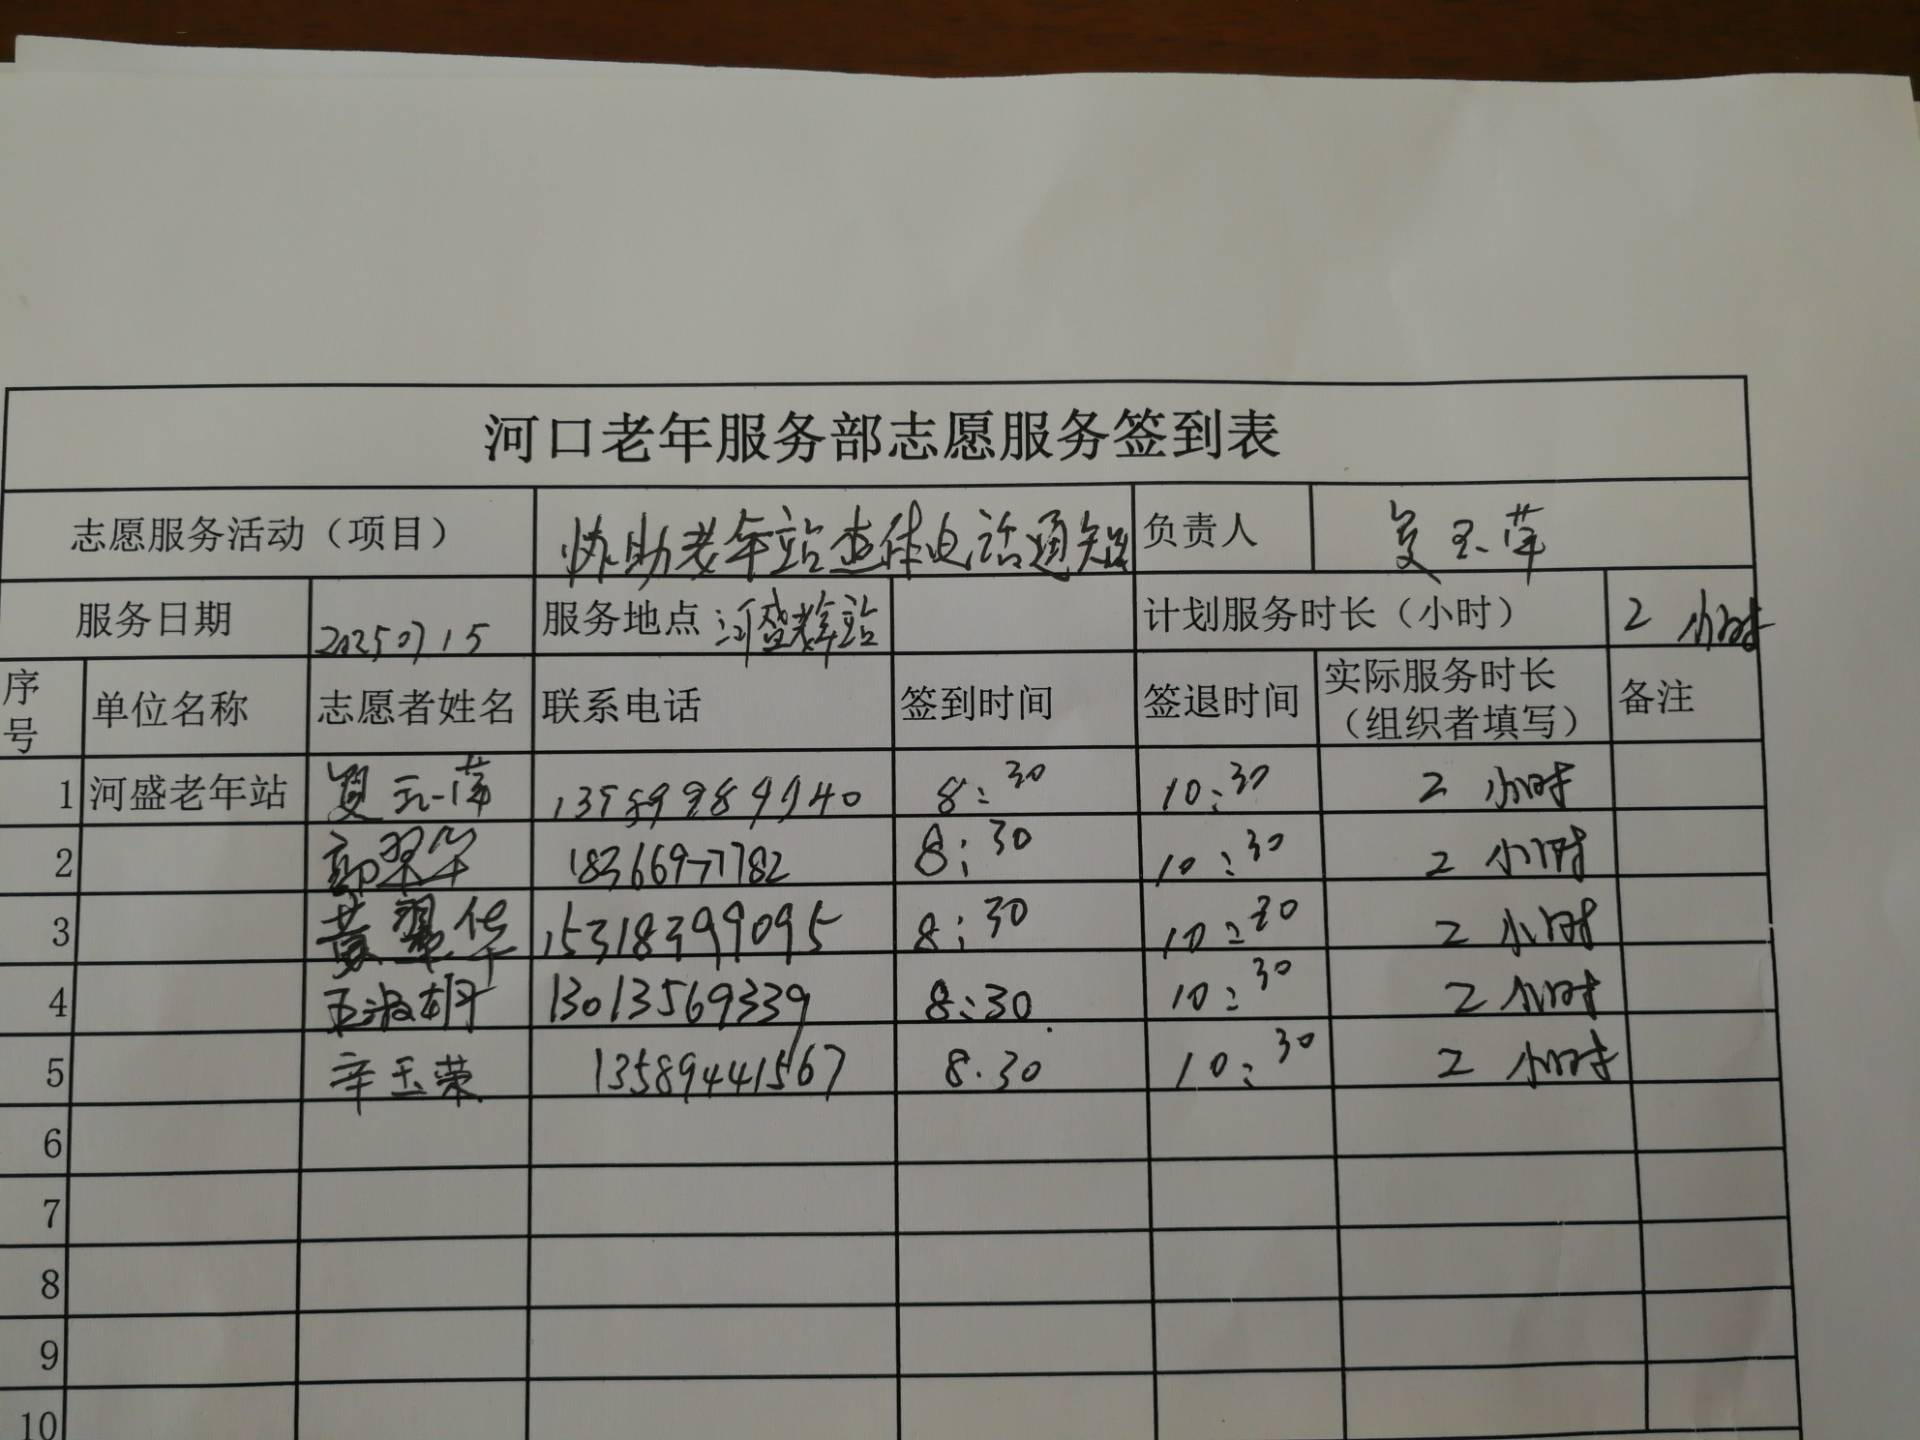 河口老年服务部志愿服务签到表
志愿服务活动（项目） 协助老年站查体电话通知 负责人
服务日期 20250715 服务地点 河盛老年站 计划服务时长（小时） 2 小时
序号 单位名称 志愿者姓名 联系电话 签到时间 签退时间 实际服务时长（组织者填写） 备注
1 河盛老年站 8:30 10:30 2 小时
2 郭翠华 18366977782 8:30 10:30 2 小时
3 黄翠华 15318399095 8:30 10:30 2 小时
4 王淑朋 13013569339 8:30 10:30 2 小时
5 辛玉荣 13589441567 8.30 10:30 2 小时
6
7
8
9
10